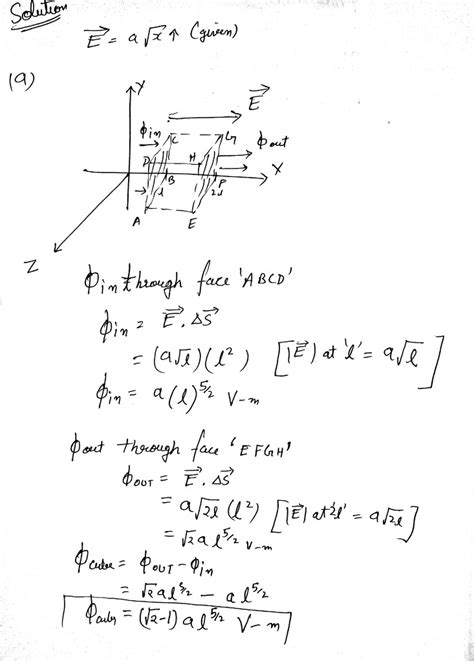 Solution
E⃗ = a√x ↑ (given)
(a)
Y
E⃗
ϕin
C
G
ϕout
D
H
X
l
B
P
2l
A
E
Z
ϕin through face 'ABCD'
ϕin = E⃗. ΔS⃗
= (a√l)(l²) [|E⃗| at 'l' = a√l]
ϕin = a(l)^5/2 V-m
ϕout through face 'EFGH'
ϕOUT = E⃗. ΔS⃗
= a√2l (l²) [|E⃗| at '2l' = a√2l]
= √2 a l^5/2 V-m
ϕcube = ϕOUT - ϕin
= √2 a l^5/2 - a l^5/2
ϕcube = (√2-1) a l^5/2 V-m